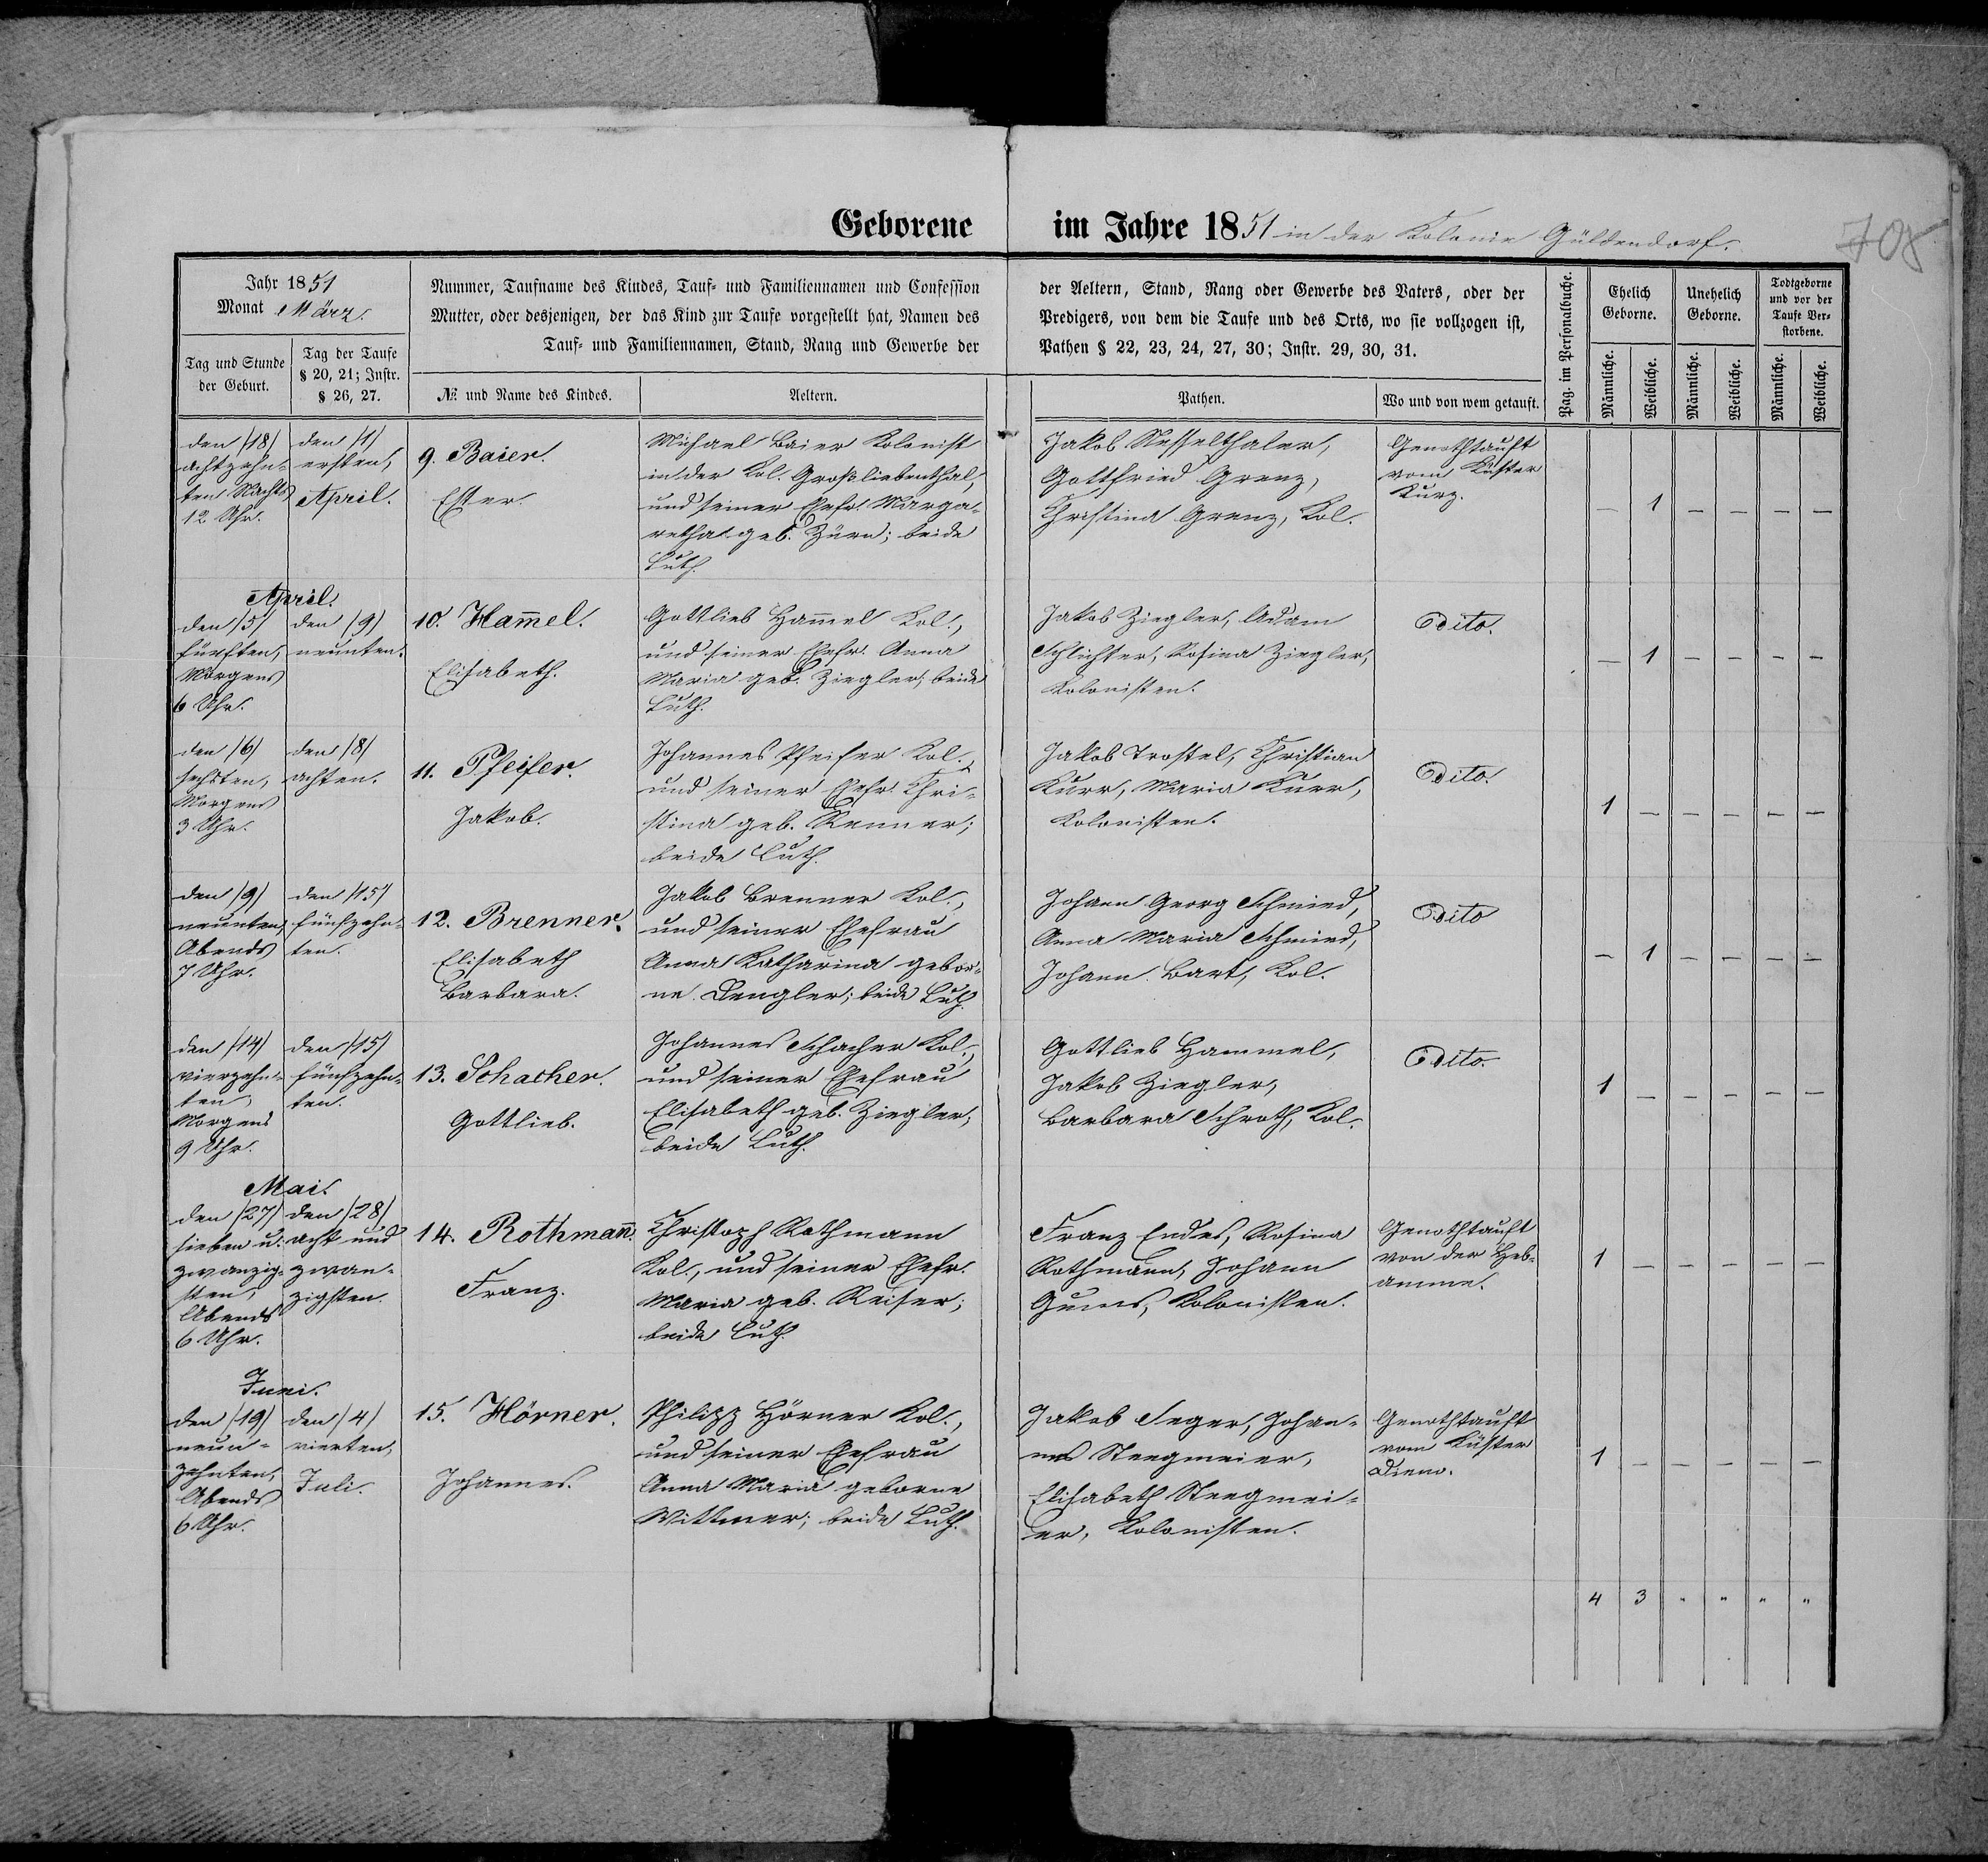 Geborene im Jahre 1851 in der Kolonie Güldendorf.
708
Jahr 1851
Monat März.
Tag und Stunde
der Geburt.
Tag der Taufe
§ 20, 21; Instr.
§ 26, 27.
Nummer, Taufname des Kindes, Tauf= und Familiennamen und Confession der Aeltern, Stand, Rang oder Gewerbe des Vaters, oder der
Mutter, oder desjenigen, der das Kind zur Taufe vorgestellt hat, Namen des Predigers, von dem die Taufe und des Orts, wo sie vollzogen ist,
Tauf= und Familiennamen, Stand, Rang und Gewerbe der Pathen § 22, 23, 24, 27, 30; Instr. 29, 30, 31.
№ und Name des Kindes.
Aeltern.
Pathen.
Wo und von wem getauft.
Pag. im Personalbuche.
Ehelich
Geborne.
Unehelich
Geborne.
Todtgeborne
und vor der
Taufe Ver=
storbene.
Männliche.
Weibliche.
Männliche.
Weibliche.
Männliche.
Weibliche.
den /18/
achtzehn=
ten Nachts
12 Uhr.
den /1/
ersten,
April.
9. Baier.
Ester.
Michael Baier Kolonist
in der Kol. Großliebenthal,
und seiner Ehefr. Marga=
retha geb. Zürn; beide
Luth.
Jakob Nesselthaler,
Gottfried Grenz,
Christina Grenz, Kol.
Genothtauft
vom Küster
Kurz.
— 1 — — — —
April.
den /5/
fünften,
Morgens
6 Uhr.
den /9/
neunten.
10. Ham̄el.
Elisabeth.
Gottlieb Ham̄el Kol.,
und seiner Ehefr. Anna
Maria geb. Ziegler; beide
Luth.
Jakob Ziegler, Adam
Schlichter, Rosina Ziegler,
Kolonisten.
Dito.
— 1 — — — —
den /6/
sechsten,
Morgens
3 Uhr.
den /8/
achten.
11. Pfeifer.
Jakob.
Johannes Pfeifer Kol.,
und seiner Ehefr. Chri=
stina geb. Renner;
beide Luth.
Jakob Trostel, Christian
Kurr, Maria Kurr,
Kolonisten.
Dito.
1 — — — — —
den /9/
neunten,
Abends
7 Uhr.
den /15/
fünfzehn=
ten.
12. Brenner.
Elisabeth
Barbara.
Jakob Brenner Kol.,
und seiner Ehefrau
Anna Katharina gebor=
ne Dengler; beide Luth.
Johann Georg Schmied,
Anna Maria Schmied,
Johann Bart, Kol.
Dito
— 1 — — — —
den /14/
vierzehn=
ten,
Morgens
9 Uhr.
den /15/
fünfzehn=
ten.
13. Schacher.
Gottlieb.
Johannes Schacher Kol.,
und seiner Ehefrau
Elisabeth geb. Ziegler;
beide Luth.
Gottlieb Hammel,
Jakob Ziegler,
Barbara Schroth, Kol.
Dito.
1 — — — — —
Mai.
den /27/
sieben u.
zwanzig=
sten,
Abends
6 Uhr.
den /28/
acht und
zwan=
zigsten.
14. Rothman̄.
Franz.
Christoph Rothmann
Kol., und seiner Ehefr.
Maria geb. Reiser;
beide Luth.
Franz Endes, Rosina
Rothmann, Johann
Kolonisten.
Genothtauft
von der Heb=
amme.
1 — — — — —
Juni.
den /19/
neun=
zehnten,
Abends
6 Uhr.
den /4/
vierten,
Juli.
15. Hörner.
Johannes.
Philipp Hörner Kol.,
und seiner Ehefrau
Anna Maria geborne
Wittmer; beide Luth.
Jakob Seger, Johan=
nes Stegmeier,
Elisabeth Stegmei=
er, Kolonisten.
Genothtauft
vom Küster
1 — — — — —
4 3 " " " "